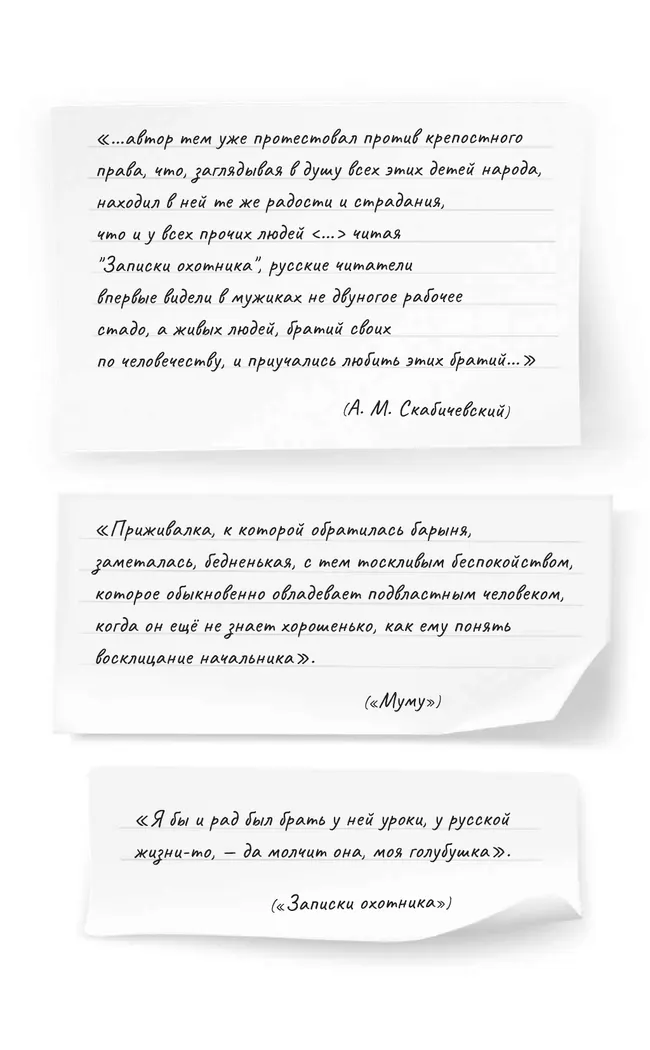 «...автор тем уже протестовал против крепостного
права, что, заглядывая в душу всех этих детей народа,
находил в ней те же радости и страдания,
что и у всех прочих людей <...> читая
"Записки охотника", русские читатели
впервые видели в мужиках не двуногое рабочее
стадо, а живых людей, братий своих
по человечеству, и приучались любить этих братий...»
(А. М. Скабичевский)
«Приживалка, к которой обратилась барыня,
заметалась, бедненькая, с тем тоскливым беспокойством,
которое обыкновенно овладевает подвластным человеком,
когда он ещё не знает хорошенько, как ему понять
восклицание начальника».
(«Муму»)
«Я бы и рад был брать у ней уроки, у русской
жизни-то, – да молчит она, моя голубушка».
(«Записки охотника»)